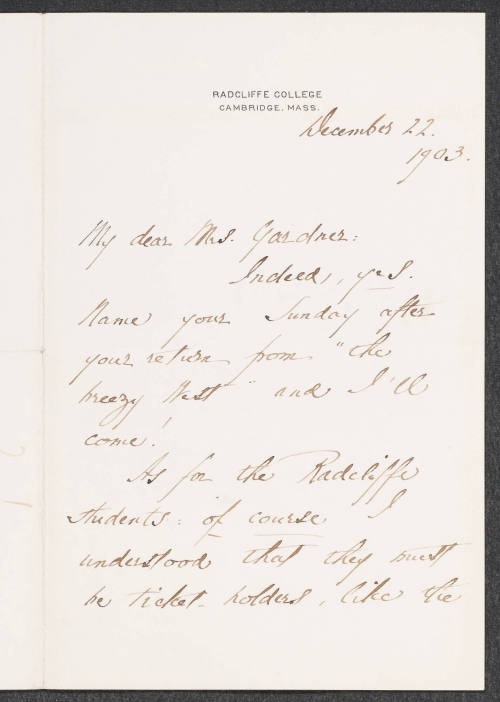 RADCLIFFE COLLEGE
CAMBRIDGE, MASS.
December 22.
1903.
My dear Mrs. Gardner:
Indeed, yes.
Name your Sunday after
your return from "the
breezy West" and I'll
come!
As for the Radcliffe
students: of course I
understood that they must
be ticket-holders, like the